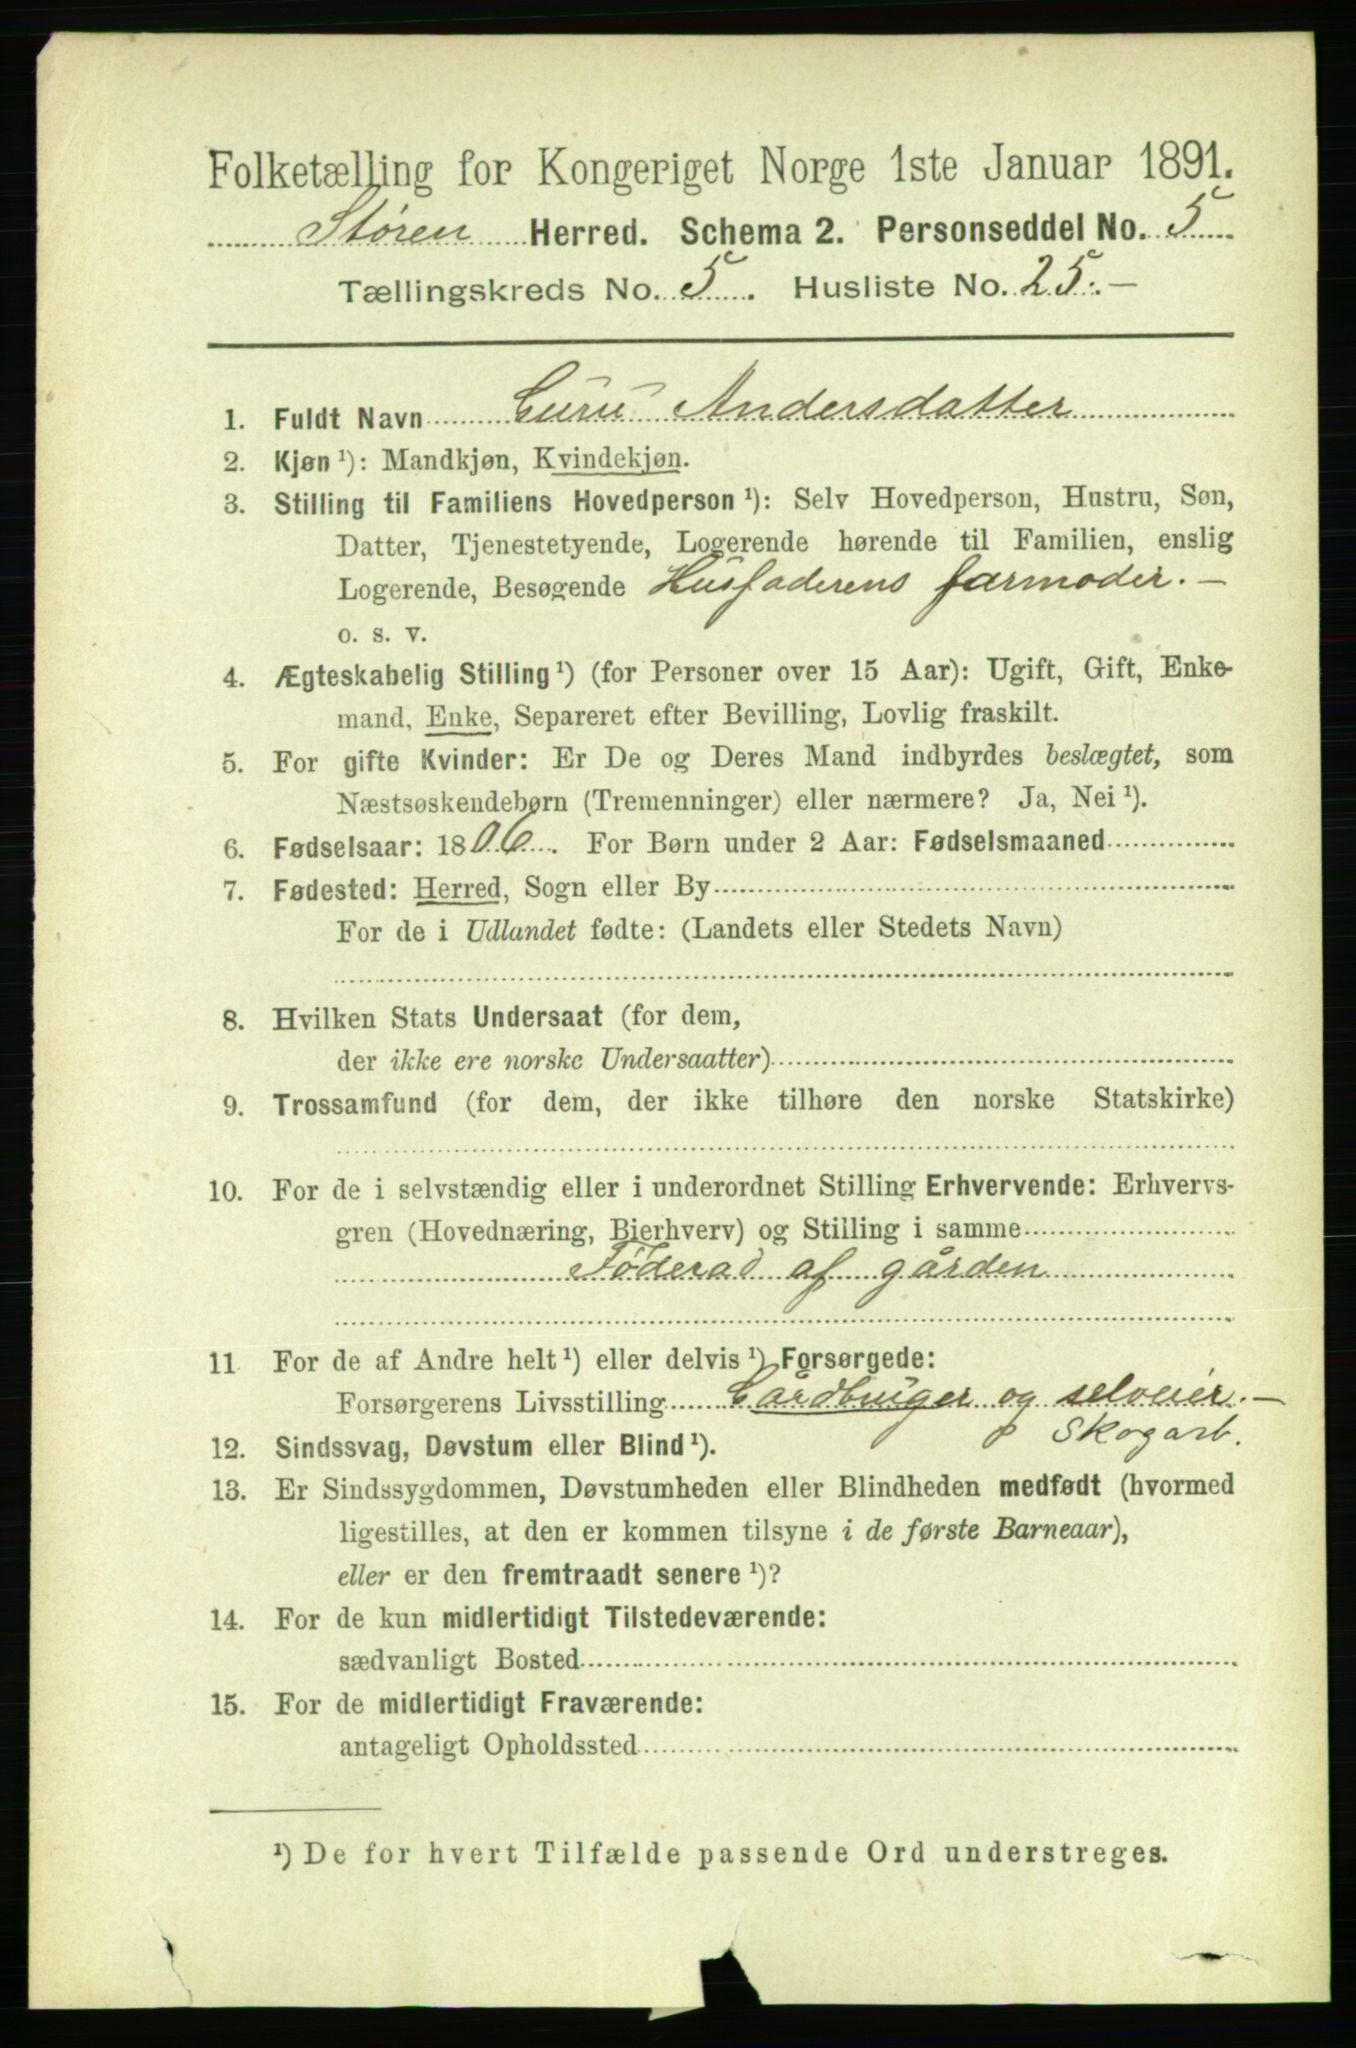 Folketælling for Kongeriget Norge 1ste Januar 1891.
Støren Herred. Schema 2. Personseddel No. 5
Tællingskreds No. 5. Husliste No. 25.-
1. Fuldt Navn Guru Andersdatter
2. Kjøn ¹): Mandkjøn, Kvindekjøn.
3. Stilling til Familiens Hovedperson ¹): Selv Hovedperson, Hustru, Søn,
Datter, Tjenestetyende, Logerende hørende til Familien, enslig
Logerende, Besøgende Husfaderens farmoder. -
o. s. v.
4. Ægteskabelig Stilling ¹) (for Personer over 15 Aar): Ugift, Gift, Enke-
mand, Enke, Separeret efter Bevilling, Lovlig fraskilt.
5. For gifte Kvinder: Er De og Deres Mand indbyrdes beslægtet, som
Næstsøskendebørn (Tremenninger) eller nærmere? Ja, Nei ¹).
6. Fødselsaar: 1806. For Børn under 2 Aar: Fødselsmaaned
7. Fødested: Herred, Sogn eller By
For de i Udlandet fødte: (Landets eller Stedets Navn)
8. Hvilken Stats Undersaat (for dem,
der ikke ere norske Undersaatter)
9. Trossamfund (for dem, der ikke tilhøre den norske Statskirke)
10. For de i selvstændig eller i underordnet Stilling Erhvervende: Erhvervs-
gren (Hovednæring, Bierhverv) og Stilling i samme
Føderad af gården
11 For de af Andre helt ¹) eller delvis ¹) Forsørgede:
Forsørgerens Livsstilling Gårdbruger og selveier. -
Skogarb.
12. Sindssvag, Døvstum eller Blind ¹).
13. Er Sindssygdommen, Døvstumheden eller Blindheden medfødt (hvormed
ligestilles, at den er kommen tilsyne i de første Barneaar),
eller er den fremtraadt senere ¹)?
14. For de kun midlertidigt Tilstedeværende:
sædvanligt Bosted
15. For de midlertidigt Fraværende:
antageligt Opholdssted
¹) De for hvert Tilfælde passende Ord understreges.